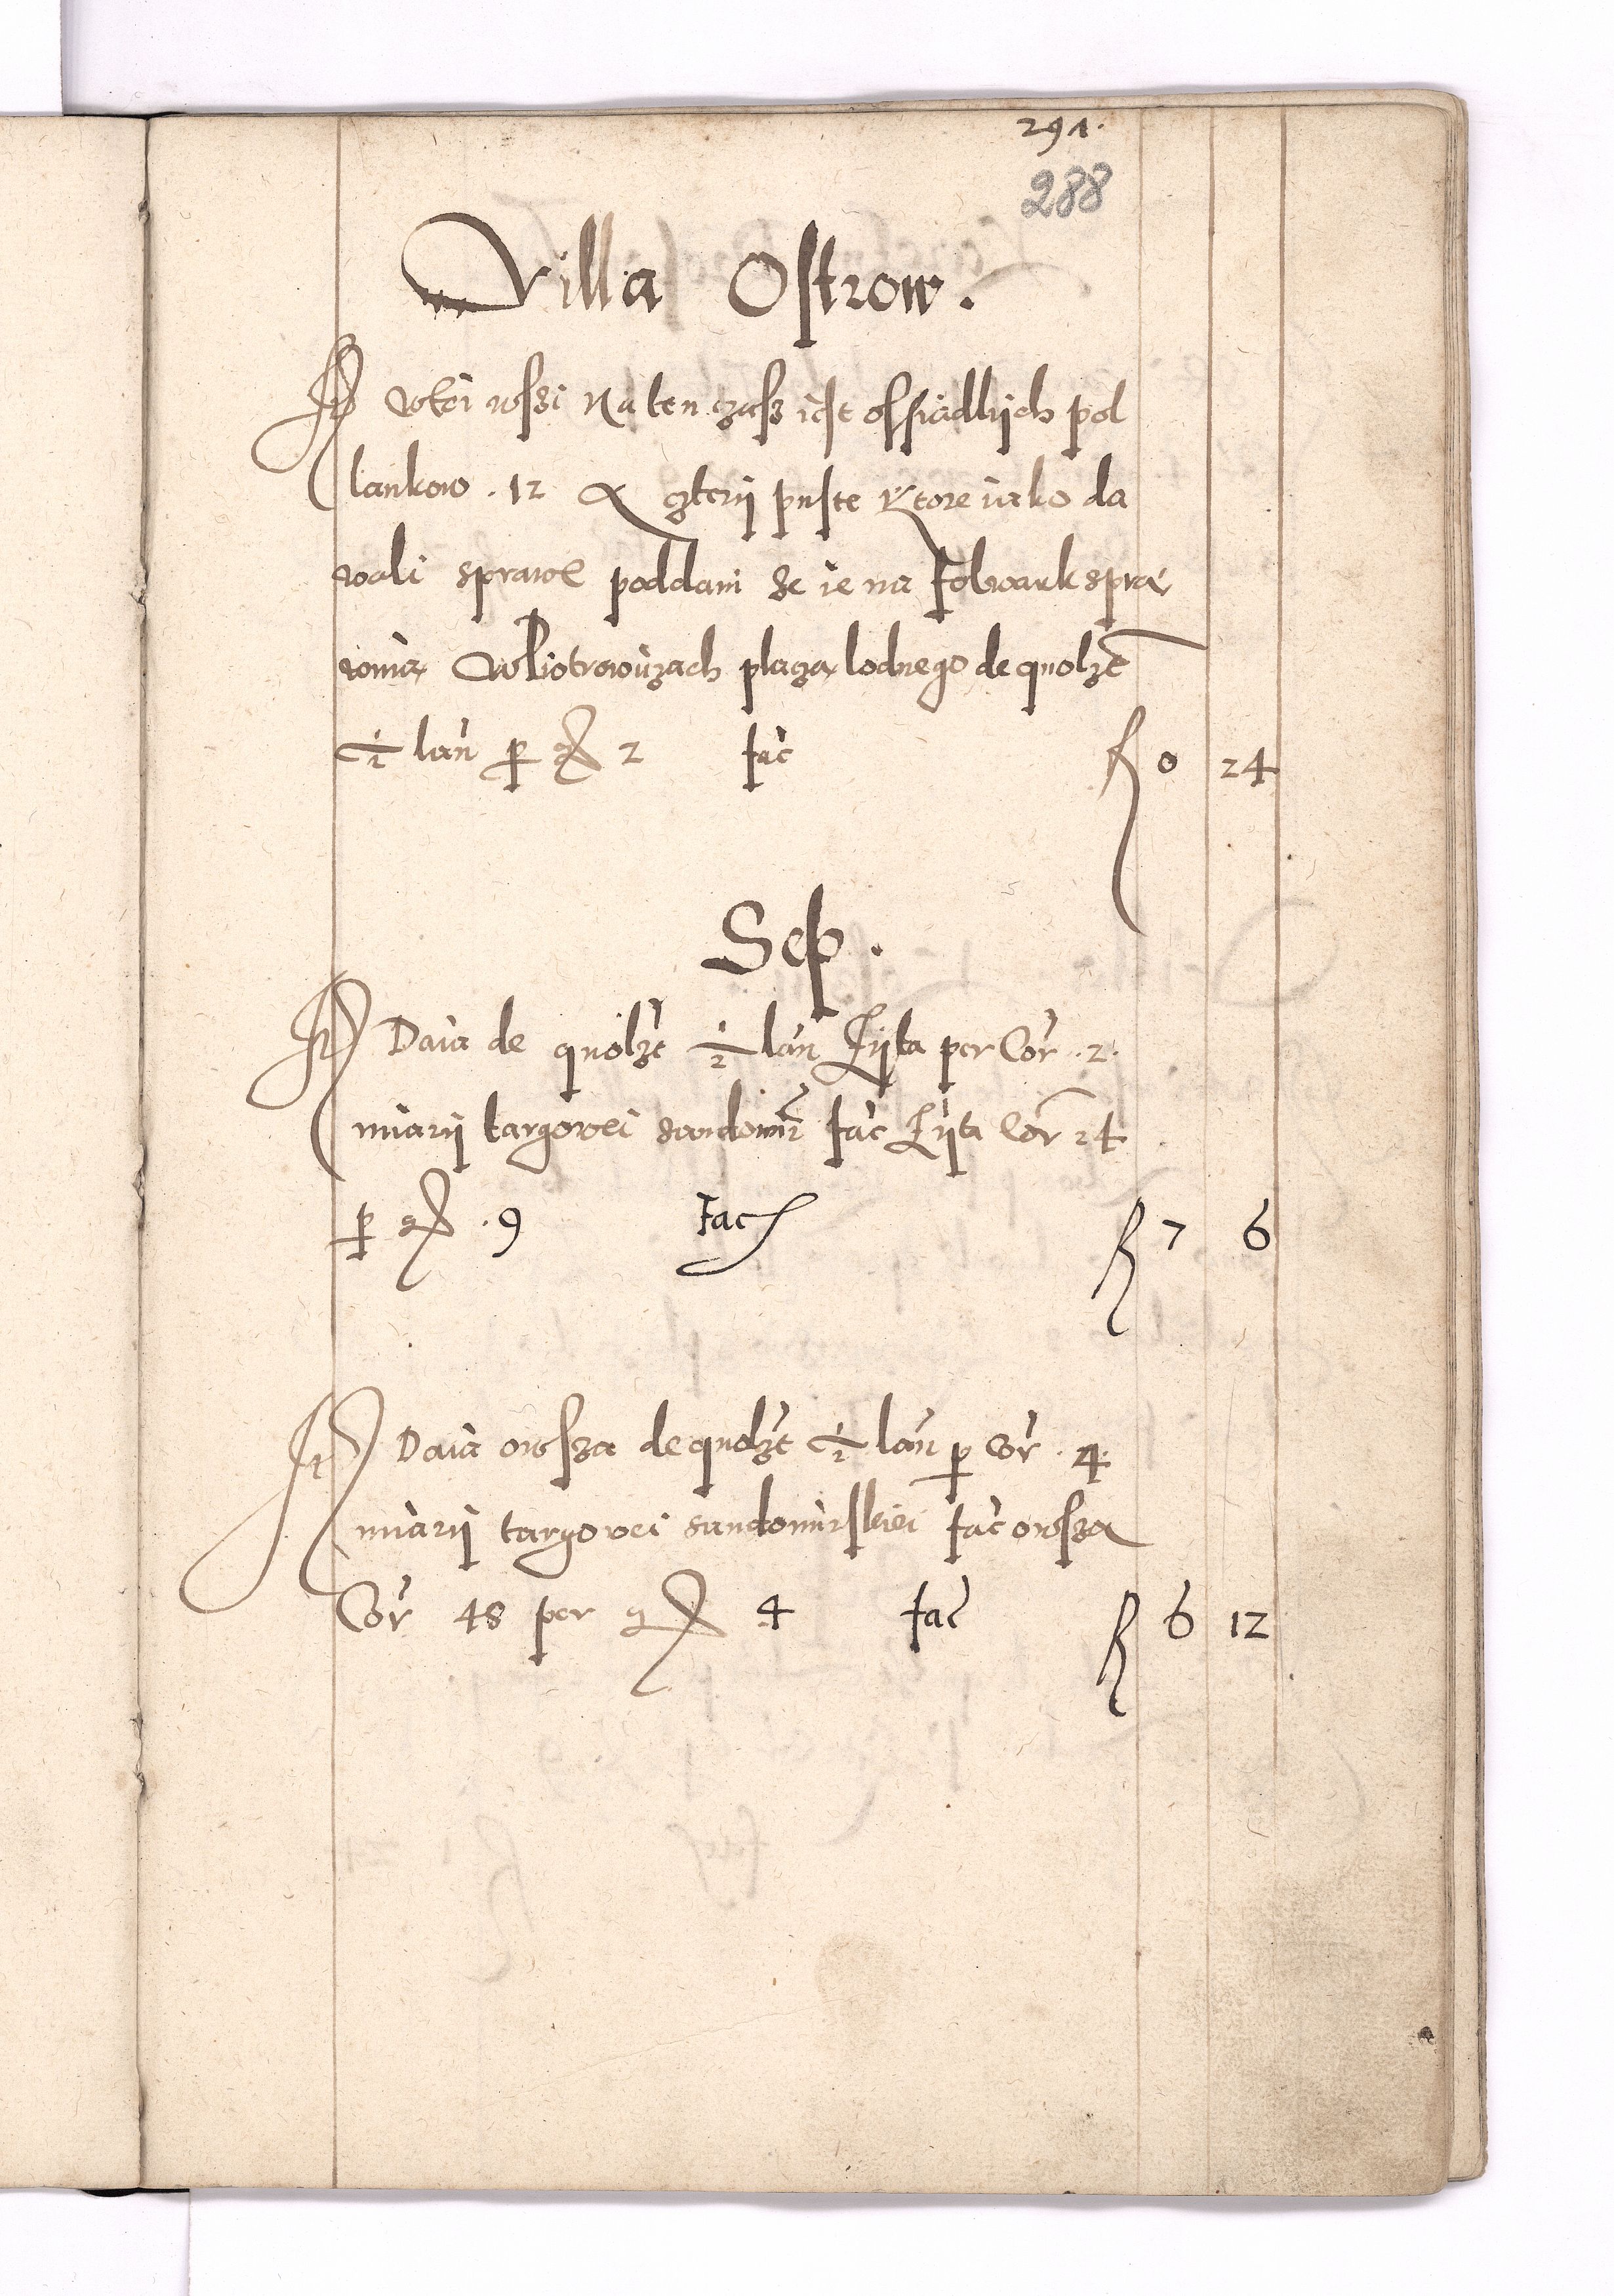 291.
288
Villa Ostrow.
It Wtei wsſi na ten czasz iest osſiadlijch pol
lankow . 12 A czterij puste ktore iako da
wali sprawę poddani że ie na Folwark spra
wuia WPiotrowiczach placza lodnego de quolzt
½ lan per gr 2 fac fl 0 24
Sep.
It Daia de quolzt ½ lan Żijta per Cor . 2 .
miarij targowei sandomir fac Żijta Cor 24
per gr . 9 Fac fl 7 6
It Daia owsza de quolzt ½ lan per Cor . 4 .
miarij targowei sandomirskiei fac owsza
Cor 48 per gr 4 fac fl 6 12